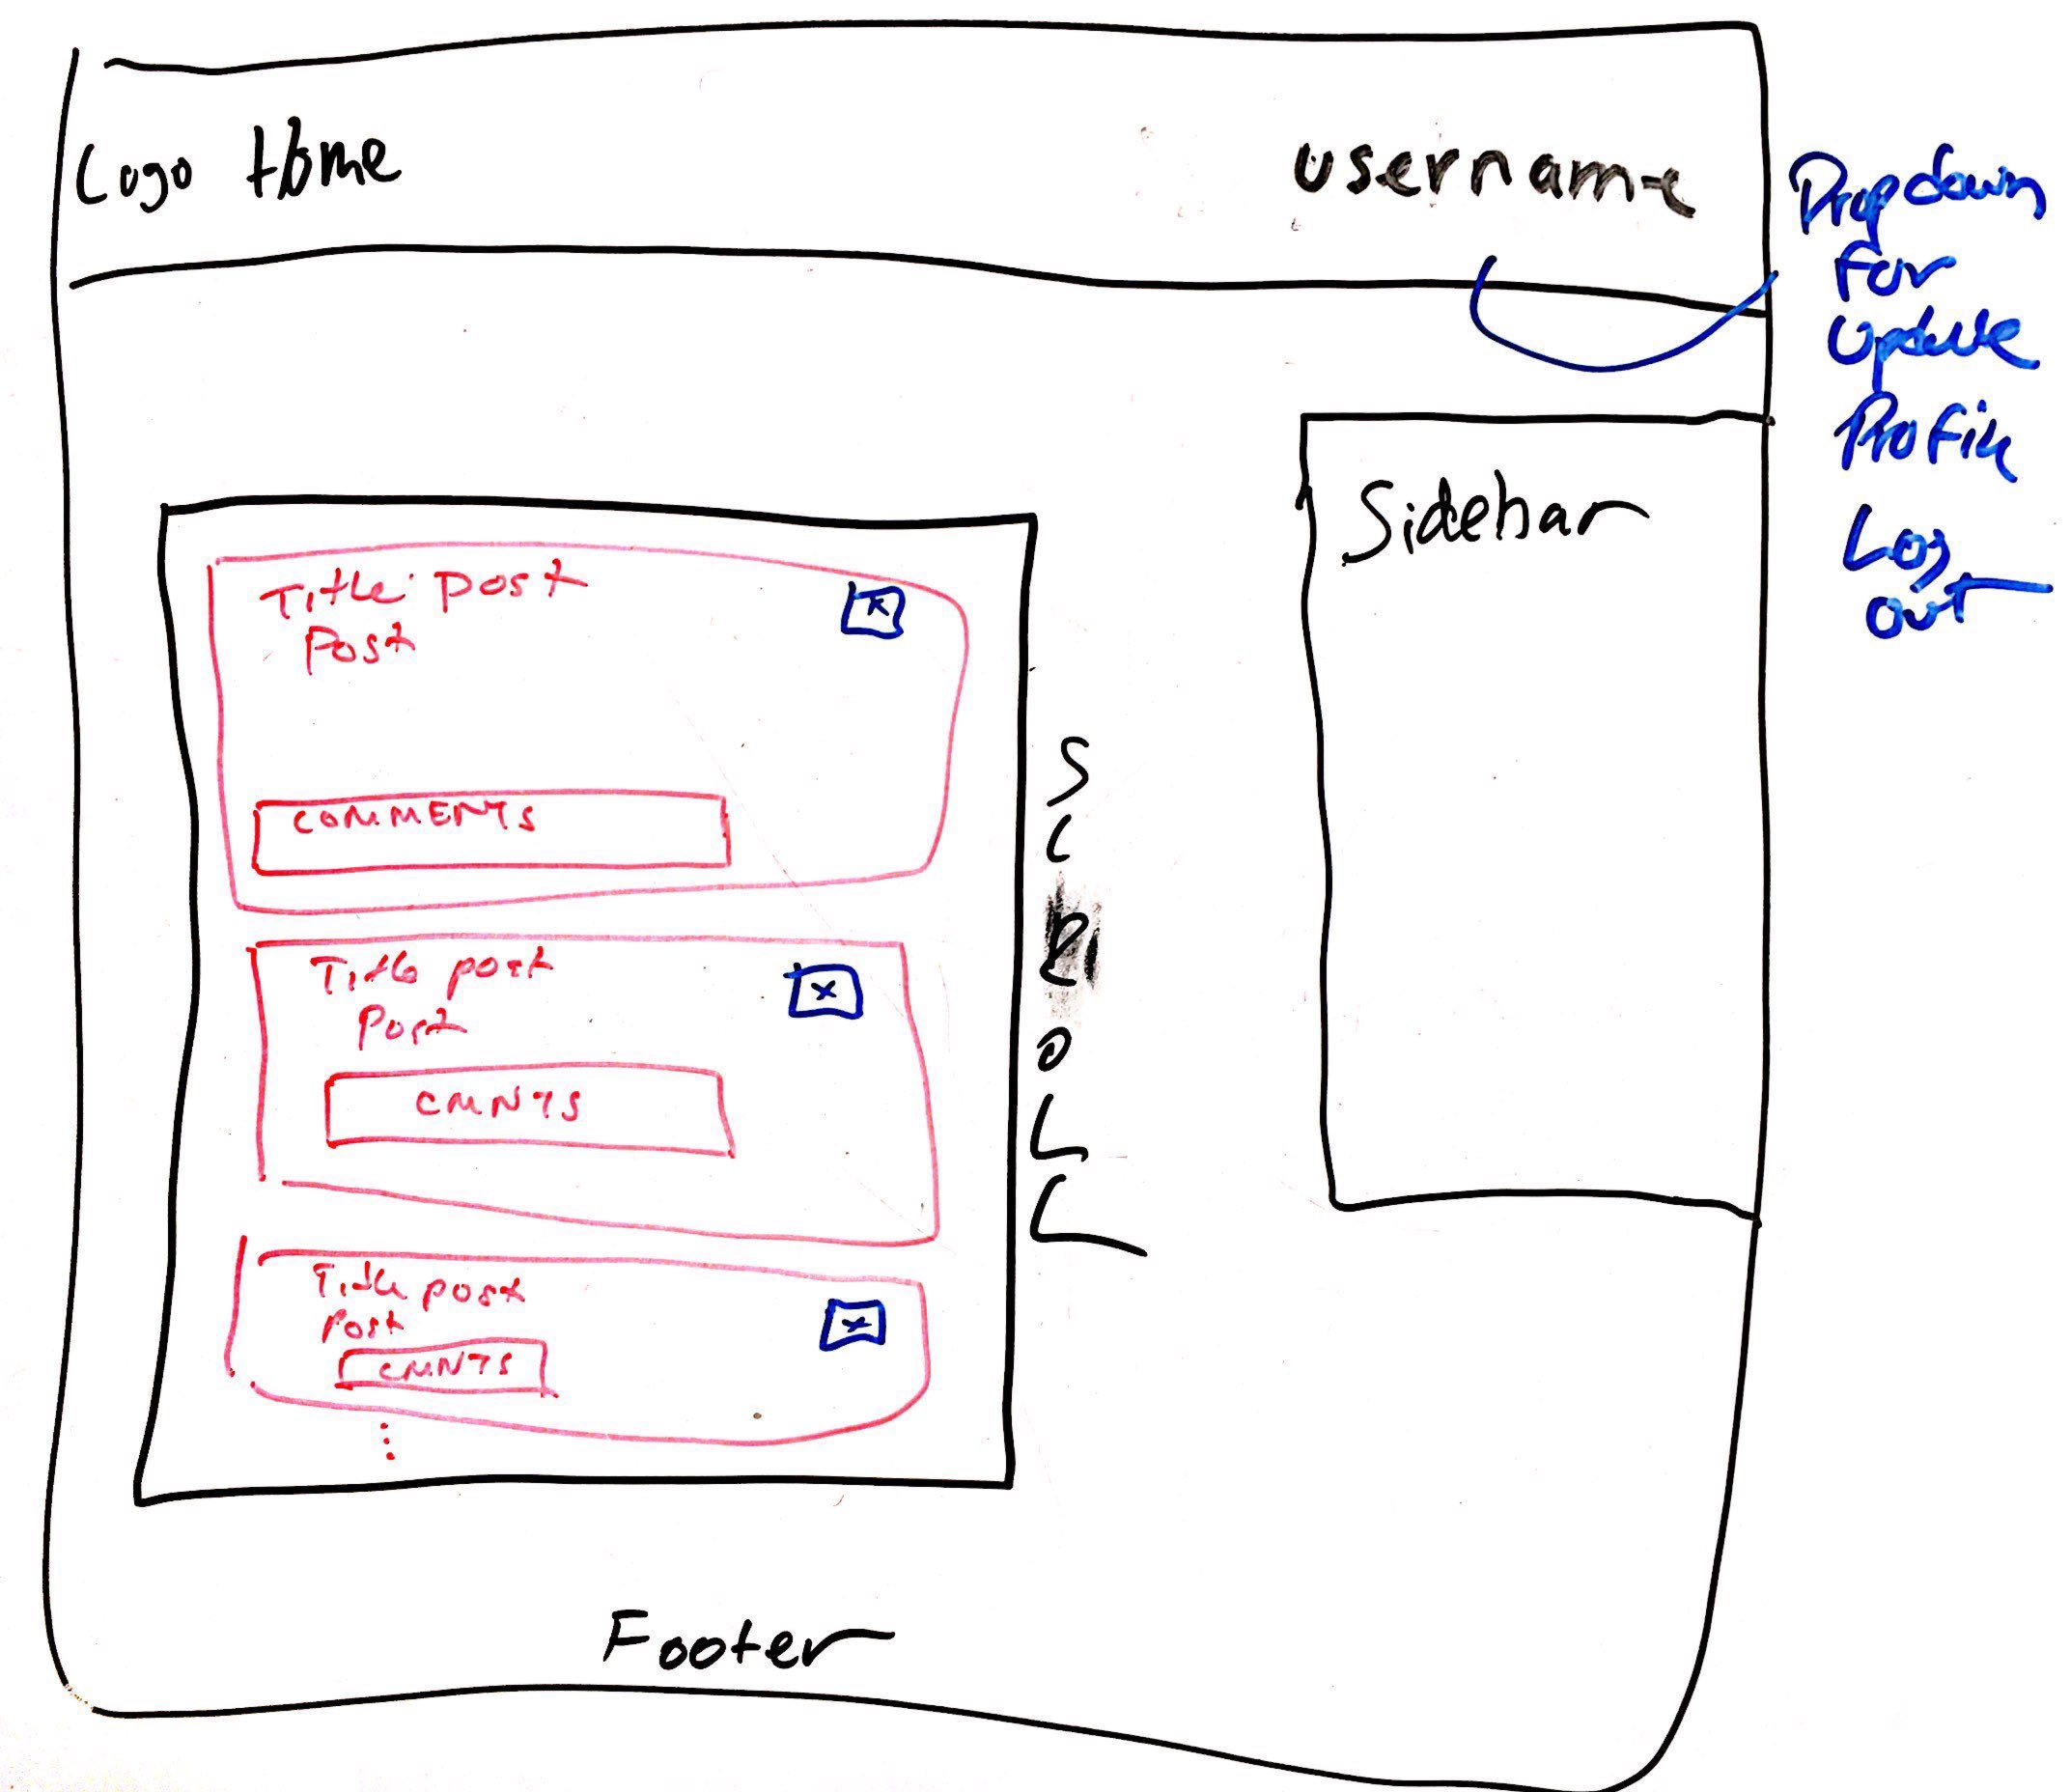 Logo Home
username
Dropdown
For
Update
Profile
Log
Out
Sidebar
Title post
Post
x
COMMENTS
Title post
Post
x
CMNTS
Title post
Post
x
CMNTS
S
C
R
O
L
L
Footer